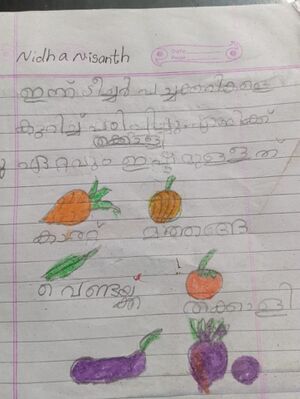 Nidha Nisanth
Date
Page
ഇന്ന് ടീച്ചർ പച്ചക്കറികളെ
കുറിച്ച് പഠിപ്പിച്ചു. എനിക്ക്
തക്കാളി
ഏറ്റവും ഇഷ്ടമുള്ളത്
കാരറ്റ്
മത്തങ്ങ
വെണ്ടയ്ക്ക
തക്കാളി